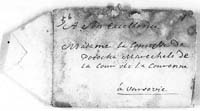 A Son Excellence
Madame La Comtesse de
Potocka Marechale de
la Cour de la Couronne
à Varsovie